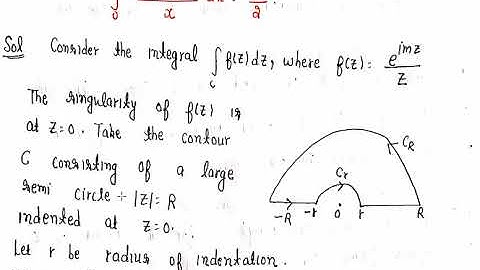 ∫ x dx = 2.
0
Sol Consider the integral ∫ f(z) dz, where f(z) = e^{imz}/z
C
The singularity of f(z) is
at z=0. Take the contour
C consisting of a large
semi circle |z|=R
indented at z=0.
Let r be radius of indentation.
C_R
C_r
-R -r 0 r R